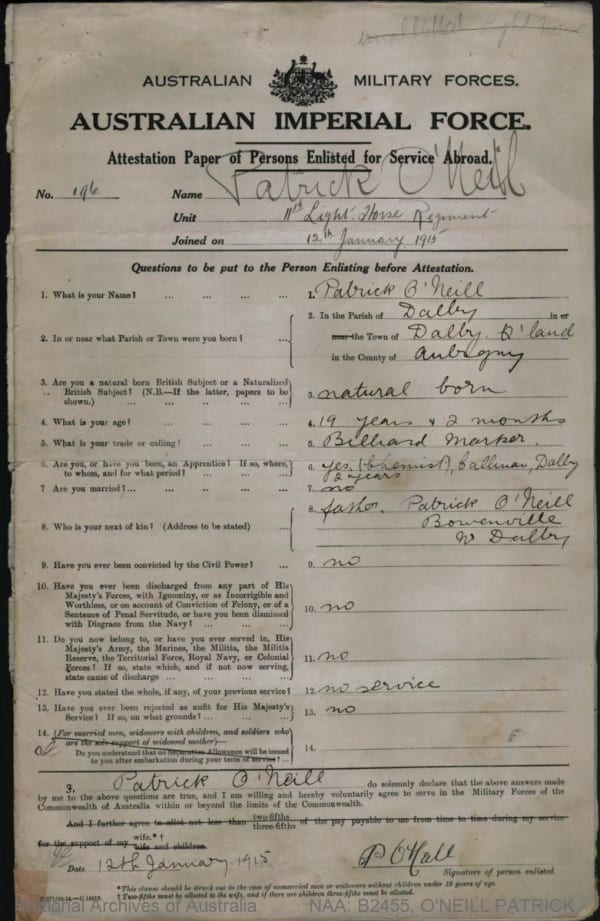 AUSTRALIAN MILITARY FORCES.
AUSTRALIAN IMPERIAL FORCE.
Attestation Paper of Persons Enlisted for Service Abroad.
No. 196 Name Patrick O'Neill
Unit 11th Light Horse Regiment
Joined on 12th January 1915
Questions to be put to the Person Enlisting before Attestation.
1. What is your Name? ... ... ... ... 1. Patrick O'Neill
2. In or near what Parish or Town were you born? ... 2. In the Parish of Dalby in or
near the Town of Dalby. Q'land
in the County of Aubigny
3. Are you a natural born British Subject or a Naturalized
British Subject? (N.B.—If the latter, papers to be
shown.) ... ... ... ... 3. natural born
4. What is your age? ... ... ... ... 4. 19 years & 2 months
5. What is your trade or calling? ... ... ... 5. Billiard Marker.
6. Are you, or have you been, an Apprentice? If so, where,
to whom, and for what period? ... ... ... 6. yes, (Chemist), Callinan, Dalby
2 years
7 Are you married? ... ... ... ... 7. no
8. Who is your next of kin? (Address to be stated) ... 8. father. Patrick O'Neill
Bowenville
W Dalby
9. Have you ever been convicted by the Civil Power? ... 9. no
10. Have you ever been discharged from any part of His
Majesty's Forces, with Ignominy, or as Incorrigible and
Worthless, or on account of Conviction of Felony, or of a
Sentence of Penal Servitude, or have you been dismissed
with Disgrace from the Navy? ... ... ... 10. no
11. Do you now belong to, or have you ever served in, His
Majesty's Army, the Marines, the Militia, the Militia
Reserve, the Territorial Force, Royal Navy, or Colonial
Forces? If so, state which, and if not now serving,
state cause of discharge ... ... ... 11. no
12. Have you stated the whole, if any, of your previous service? 12. no service
13. Have you ever been rejected as unfit for His Majesty's
Service? If so, on what grounds? ... ... ... 13. no
14. (For married men, widowers with children, and soldiers who
are the sole support of widowed mother)—
Do you understand that no Separation Allowance will be issued
to you after embarkation during your term of service? ... 14.
I, Patrick O'Neill do solemnly declare that the above answers made
by me to the above questions are true, and I am willing and hereby voluntarily agree to serve in the Military Forces of the
Commonwealth of Australia within or beyond the limits of the Commonwealth.
And I further agree to allot not less than two-fifths three-fifths of the pay payable to me from time to time during my service
for the support of my wife.*† wife and children.
Date 12th January 1915
P O'Neill
Signature of person enlisted.
*This clause should be struck out in the case of unmarried men or widowers without children under 18 years of age.
†Two-fifths must be allotted to the wife, and if there are children three-fifths must be allotted.
National Archives of Australia NAA: B2455, O'NEILL PATRICK